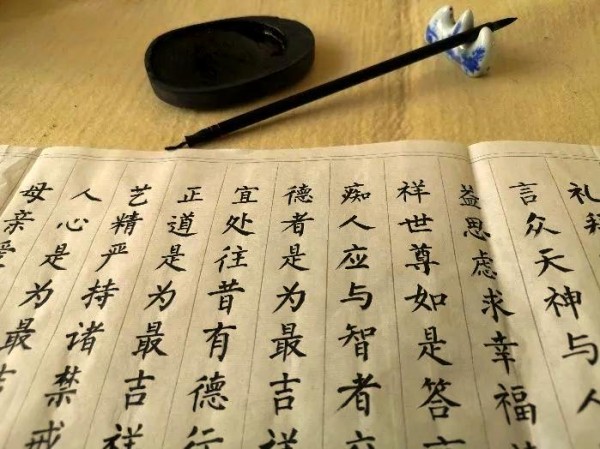 礼
言众天神与人
益思虑求幸福
祥世尊如是答言
痴人应与智者交
德者是为最吉祥
宜处往昔有德行
正道是为最吉祥
艺精严持诸禁戒
人心是为最吉
母亲爱